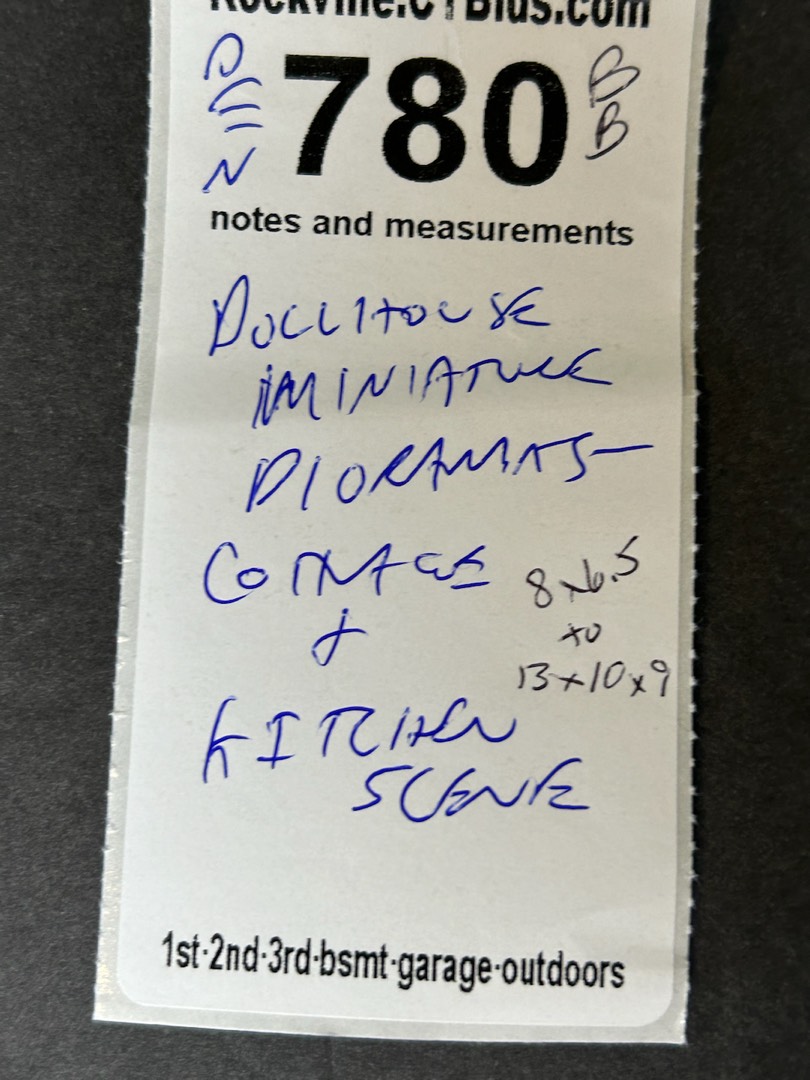 Rockville.CTBids.com
DEN 780 BB
notes and measurements
DOLLHOUSE
MINIATURE
DIORAMAS—
COTTAGE 8x6.5
+ to
13x10x9
KITCHEN
SCENE
1st·2nd·3rd·bsmt·garage·outdoors